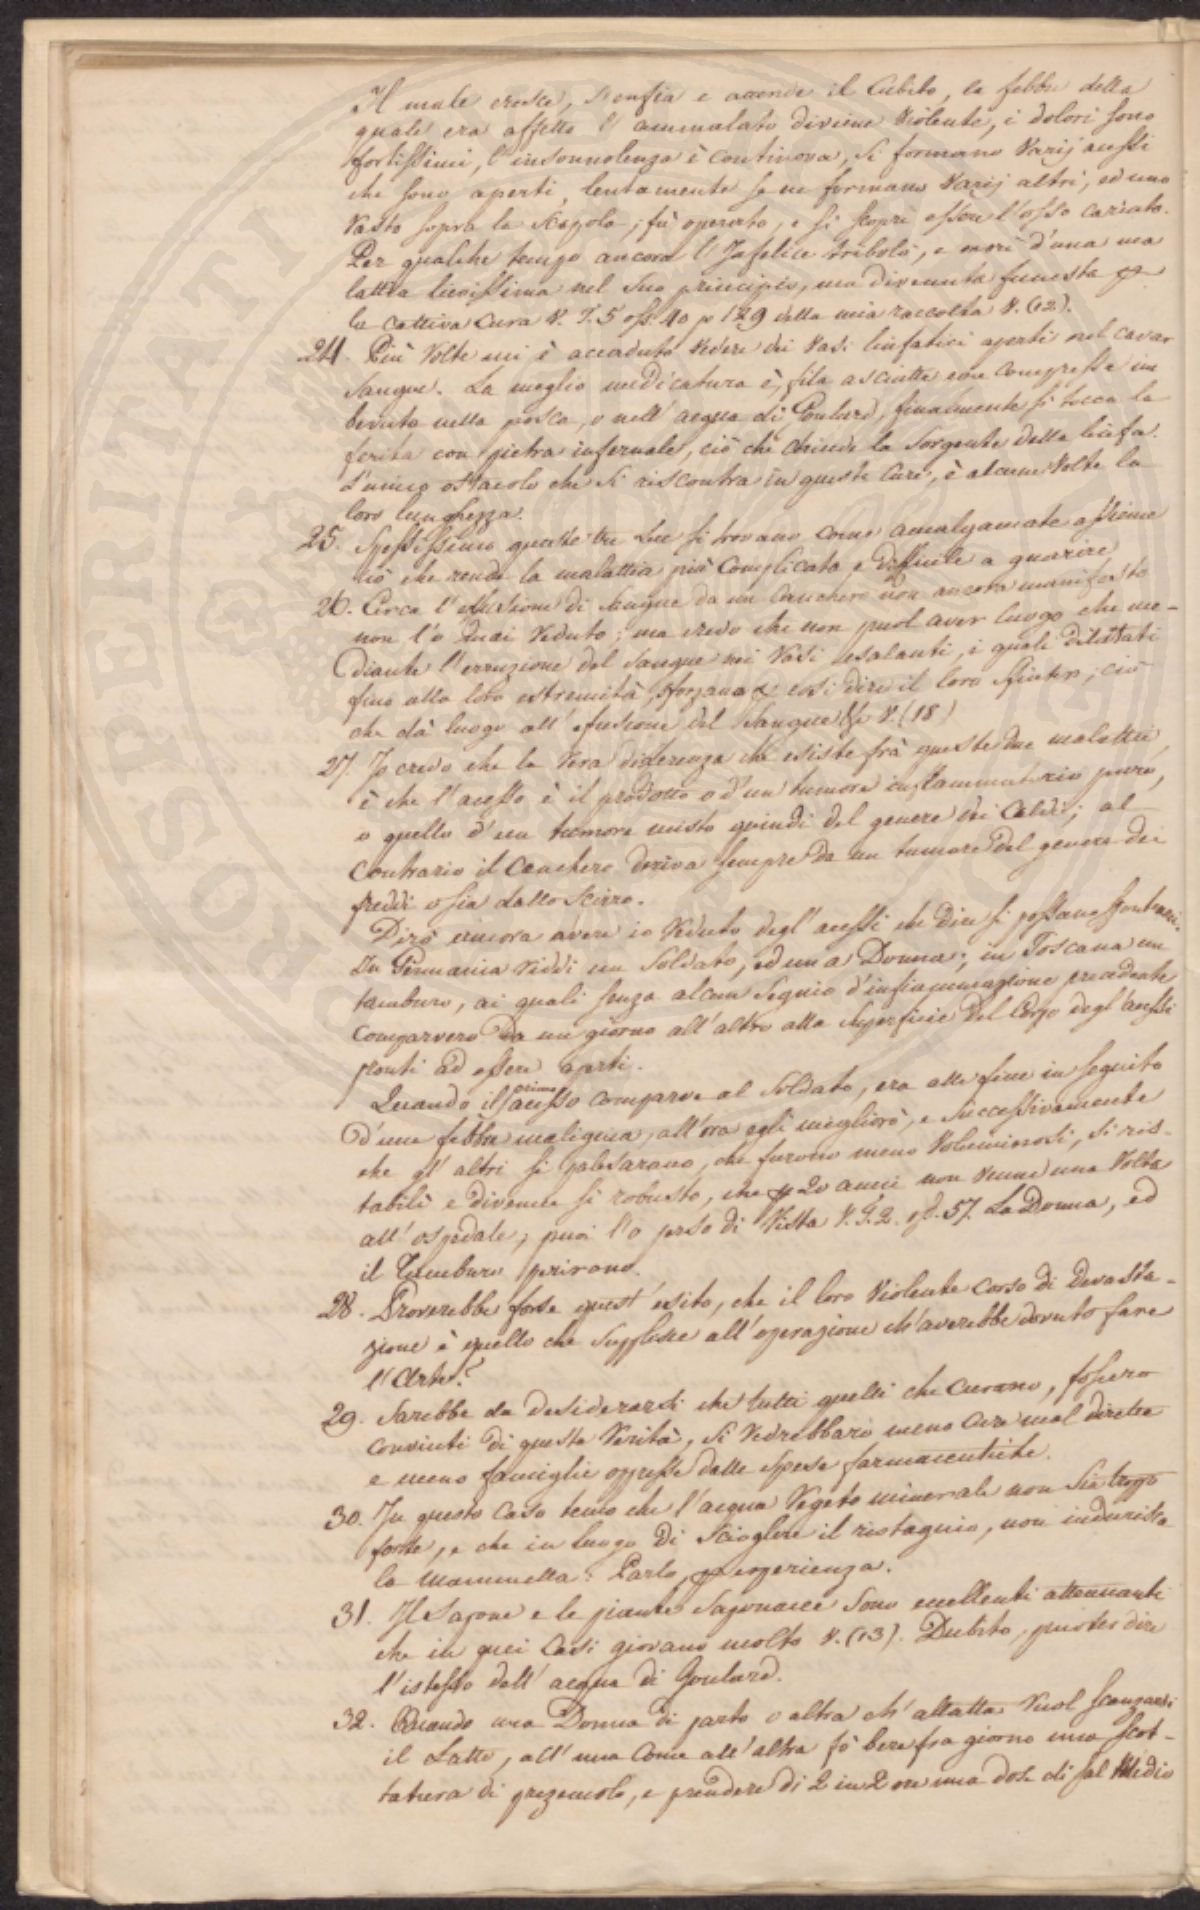 Il male cresce, si enfia e accende il Cubito, la febbre della
quale era affetto l'ammalato diviene violente, i dolori sono
fortissimi, l'insonnolenza è continova, si formano varij acessi
che sono aperti, lentamente se ne formano varij altri, ed uno
vasto sopra la scapola; fù operato, e si scoprì essere l'osso cariato.
Per qualche tempo ancora l'Infelice tribolò, e morì d'una ma
lattia lievissima nel suo principio, ma divenuta funesta p
la cattiva cura V. T. 5 oss. 40 p 129 della mia raccolta V. (12).
24. Più volte mi è accaduto vedere dei vasi linfatici aperti nel cavar
sangue. La meglio medicatura è, fila asciutte con compresse im
bevute nella posca, o nell'acqua di Goulard, finalmente si tocca la
ferita con pietra infernale, ciò che chiude la sorgente della linfa.
L'unico ostacolo che si riscontra in queste cure, è alcune volte la
loro lunghezza.
25. Spessissimo queste tre Lue si trovano come amalgamate assieme
ciò che rende la malattia più complicata, e difficile a guarire
26. Circa l'effusione di sangue da un Canchero non ancora manifesto
non l'ò mai veduto; ma credo che non puol aver luogo che me-
diante l'erruzione del sangue nei vasi esalanti, i quali dilattati
fino alla loro estremità, sforzano p così dire il loro sfinter; ciò
che dà luogo all'efusione del sangue &c V. (18)
27. Io credo che la vera diferenza che esiste frà queste due malattie,
è che l'acesso è il prodotto o d'un tumore inflammatorio puro,
o quello d'un tumore misto quindi del genere dei Calidi; al
Contrario il Canchero deriva sempre da un tumore del genere dei
freddi osia dallo scirro.
Dirò ancora avere io veduto degl'acessi che dire si possano spontanei.
In Germania viddi un Soldato, ed una Donna; in Toscana un
tamburo, ai quali senza alcun segnio d'infiammazione precedente
comparvero da un giorno all'altro alla superficie del Corpo degl'acessi
pronti ad essere aperti.
Quando il primo acesso comparve al Soldato, era alla fine in seguito
d'una febbre maligna, all'ora egli migliorò, e successivamente
che gl'altri si palesarano, che furono meno voluminosi, si ris-
tabilì e divenne sì robusto, che p 20 anni non venne una volta
all'ospedale, puoi l'ò perso di vista V. T. 2. oss. 57. La Donna, ed
il Tamburo perirano.
28. Proverebbe forse quest'esito, che il loro violente corso di devasta-
zione è quello che supplisce all'operazione ch'averebbe dovuto fare
l'Arte?
29. Sarebbe da desiderarsi che tutti quelli che curano, fossero
convinti di questa verità, si vedrebbaro meno cure mal dirette
e meno famiglie oppresse dalle spese farmaceutiche.
30. In questo caso temo che l'acqua vegeto minerale non sia troppo
forte, e che in luogo di sciogliere il ristagnio, non indurisca
la mammella: Parlo p esperienza.
31. Il sapone e le piante saponacee sono eccellenti attenuanti
che in quei casi giovano molto V. (13). Dubito, puoter dire
l'istesso dell'acqua di Goulard.
32. Quando una Donna di parto o altra ch'allatta vuol scanzarsi
il Latte, all'una come all'altra fò bere fra giorno una scot-
tatura di prezemolo, e prendere di 2 in 2 ore una dose di sal Medio